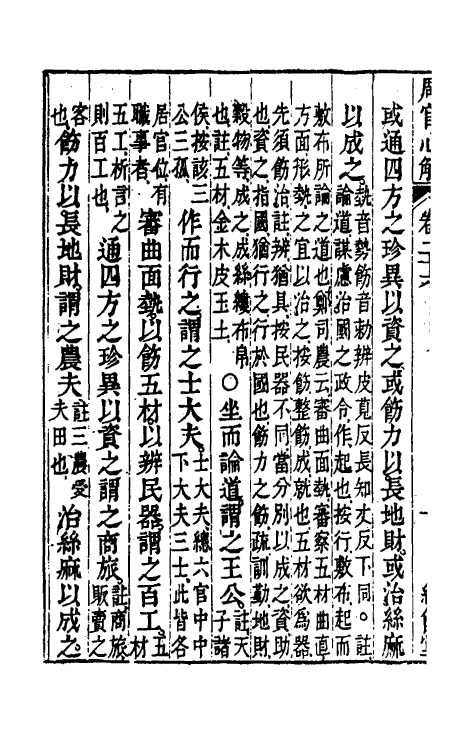 周官心解 卷二十六 一
或通四方之珍異以資之或飭力以長地財或治絲麻
以成之
埶音勢飭音勑辨皮莧反長知丈反下同。註
論道謀慮治國之政令作起也按行敷布起而
敷布所論之道也鄭司農云審曲面埶審察五材曲直
方面形埶之宜以治之按飭整飭成就也五材欲為器
先須飭治註辨猶具按民器不同當分別以成之資助
也資之指國猶行之行於國也飭力之飭疏訓勤地財
穀物等之成成絲纖布帛
也註五材金木皮玉土
○坐而論道謂之王公
註天
子諸
侯按該三
公三孤
作而行之謂之士大夫
士大夫總六官中中
下大夫三士此皆各
居官位有
職事者
審曲面埶以飭五材以辨民器謂之百工
五
材
五工析言之
則百工也
通四方之珍異以資之謂之商旅
註商旅
販賣之
客
也
飭力以長地財謂之農夫
註三農受
夫田也
治絲麻以成之